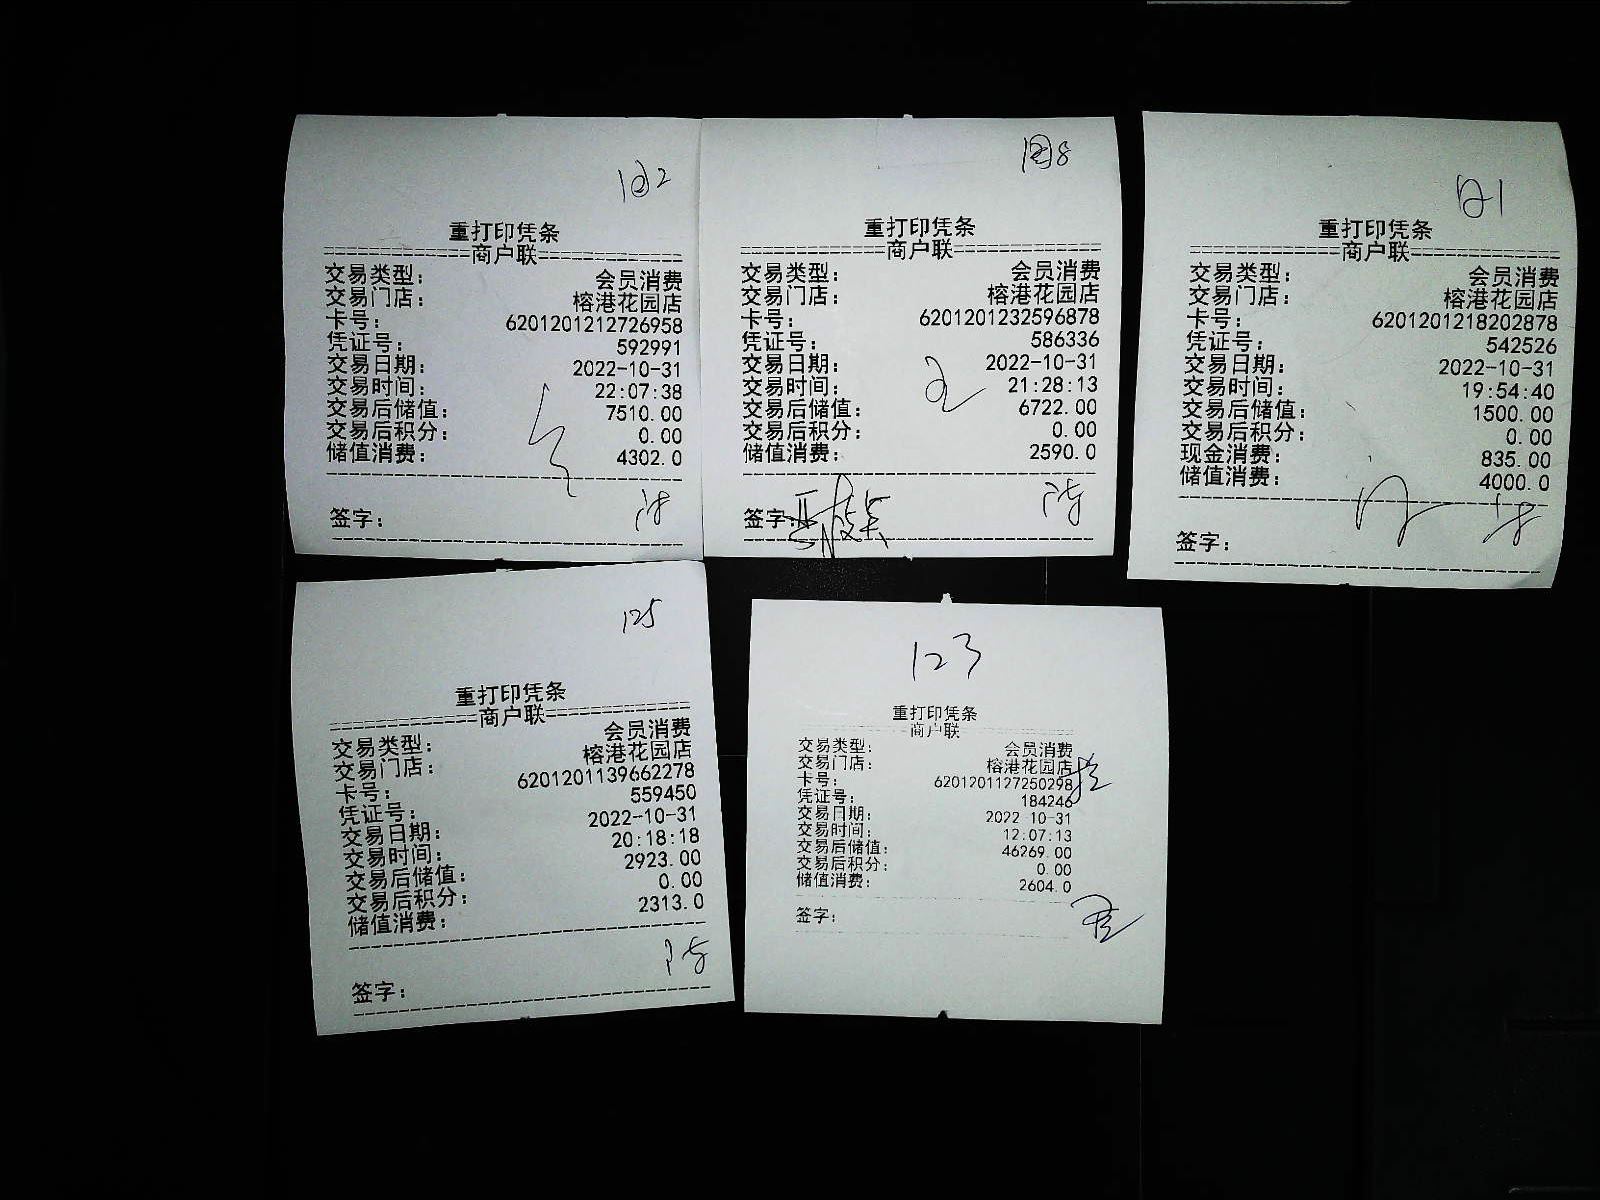 重打印凭条
商户联
交易类型： 会员消费
交易门店： 榕港花园店
卡号： 6201201212726958
凭证号： 592991
交易日期： 2022-10-31
交易时间： 22:07:38
交易后储值： 7510.00
交易后积分： 0.00
储值消费： 4302.0
签字：
重打印凭条
商户联
交易类型： 会员消费
交易门店： 榕港花园店
卡号： 6201201232596878
凭证号： 586336
交易日期： 2022-10-31
交易时间： 21:28:13
交易后储值： 6722.00
交易后积分： 0.00
储值消费： 2590.0
签字：
重打印凭条
商户联
交易类型： 会员消费
交易门店： 榕港花园店
卡号： 6201201218202878
凭证号： 542526
交易日期： 2022-10-31
交易时间： 19:54:40
交易后储值： 1500.00
交易后积分： 0.00
现金消费： 835.00
储值消费： 4000.0
签字：
125
重打印凭条
商户联
交易类型： 会员消费
交易门店： 榕港花园店
卡号： 6201201139662278
凭证号： 559450
交易日期： 2022-10-31
交易时间： 20:18:18
交易后储值： 2923.00
交易后积分： 0.00
储值消费： 2313.0
签字：
123
重打印凭条
商户联
交易类型： 会员消费
交易门店： 榕港花园店
卡号： 6201201127250298
凭证号： 184246
交易日期： 2022 10-31
交易时间： 12:07:13
交易后储值： 46269.00
交易后积分： 0.00
储值消费： 2604.0
签字：